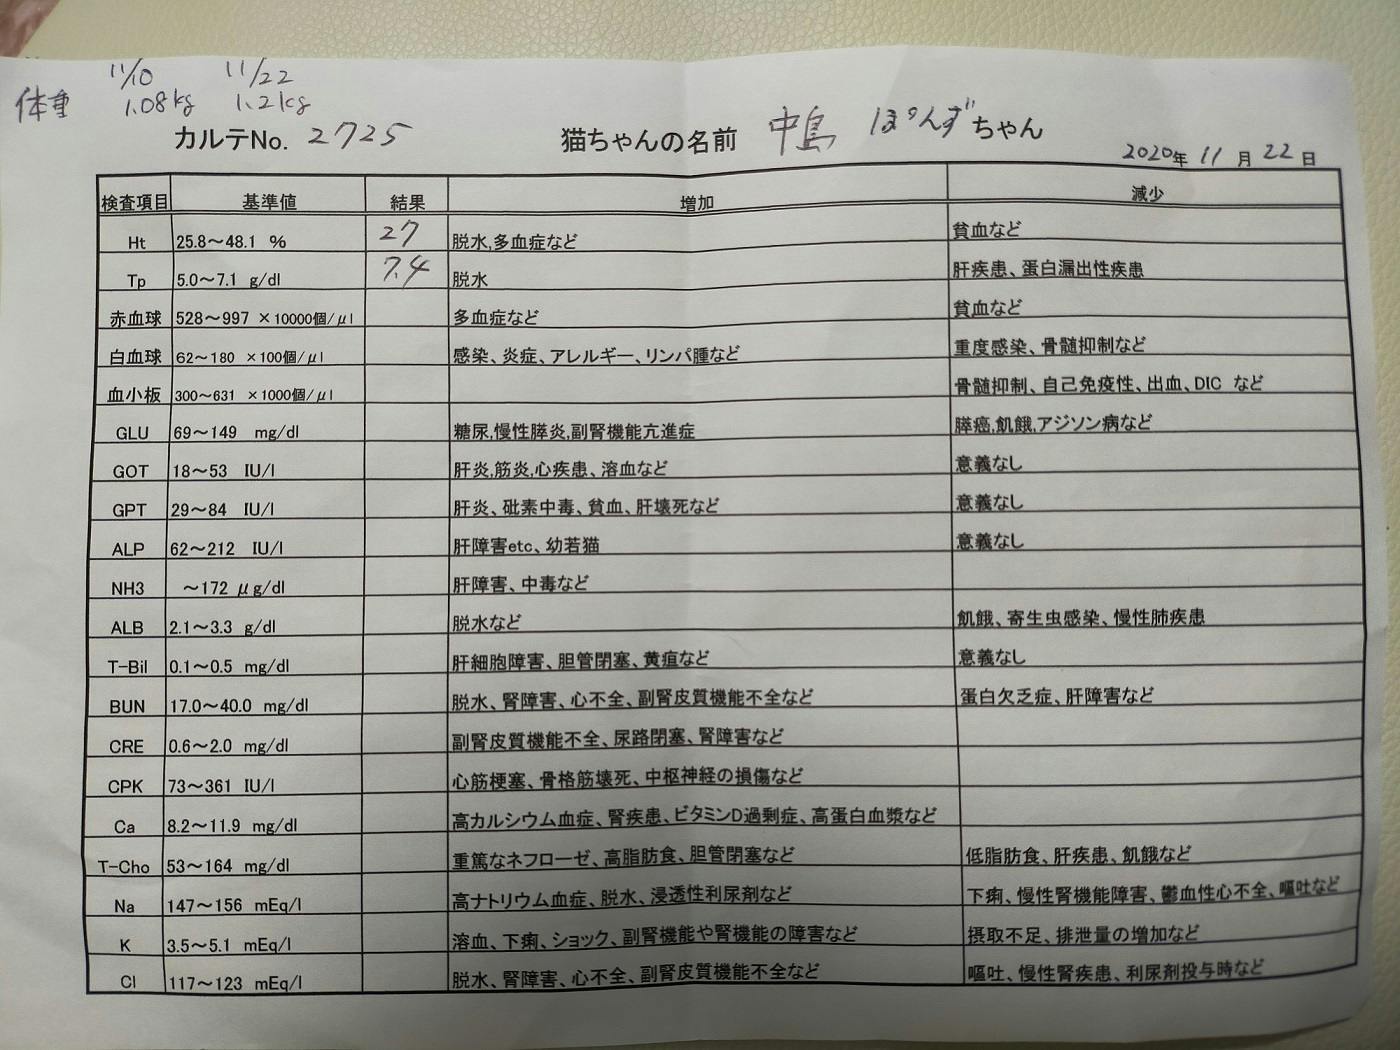 11/10 11/22
体重 1.08kg 1.2kg
カルテNo. 2725 猫ちゃんの名前 中島 ぽんず ちゃん
2020年 11月 22日
検査項目 基準値 結果 増加 減少
Ht 25.8～48.1 % 27 脱水,多血症など 貧血など
Tp 5.0～7.1 g/dl 7.4 脱水 肝疾患、蛋白漏出性疾患
赤血球 528～997 ×10000個/μl 多血症など 貧血など
白血球 62～180 ×100個/μl 感染、炎症、アレルギー、リンパ腫など 重度感染、骨髄抑制など
血小板 300～631 ×1000個/μl 骨髄抑制、自己免疫性、出血、DIC など
GLU 69～149 mg/dl 糖尿,慢性膵炎,副腎機能亢進症 膵癌,飢餓,アジソン病など
GOT 18～53 IU/l 肝炎,筋炎,心疾患、溶血など 意義なし
GPT 29～84 IU/l 肝炎、砒素中毒、貧血、肝壊死など 意義なし
ALP 62～212 IU/l 肝障害etc、幼若猫 意義なし
NH3 ～172 μg/dl 肝障害、中毒など
ALB 2.1～3.3 g/dl 脱水など 飢餓、寄生虫感染、慢性肺疾患
T-Bil 0.1～0.5 mg/dl 肝細胞障害、胆管閉塞、黄疸など 意義なし
BUN 17.0～40.0 mg/dl 脱水、腎障害、心不全、副腎皮質機能不全など 蛋白欠乏症、肝障害など
CRE 0.6～2.0 mg/dl 副腎皮質機能不全、尿路閉塞、腎障害など
CPK 73～361 IU/l 心筋梗塞、骨格筋壊死、中枢神経の損傷など
Ca 8.2～11.9 mg/dl 高カルシウム血症、腎疾患、ビタミンD過剰症、高蛋白血漿など
T-Cho 53～164 mg/dl 重篤なネフローゼ、高脂肪食、胆管閉塞など 低脂肪食、肝疾患、飢餓など
Na 147～156 mEq/l 高ナトリウム血症、脱水、浸透性利尿剤など 下痢、慢性腎機能障害、鬱血性心不全、嘔吐など
K 3.5～5.1 mEq/l 溶血、下痢、ショック、副腎機能や腎機能の障害など 摂取不足、排泄量の増加など
Cl 117～123 mEq/l 脱水、腎障害、心不全、副腎皮質機能不全など 嘔吐、慢性腎疾患、利尿剤投与時など